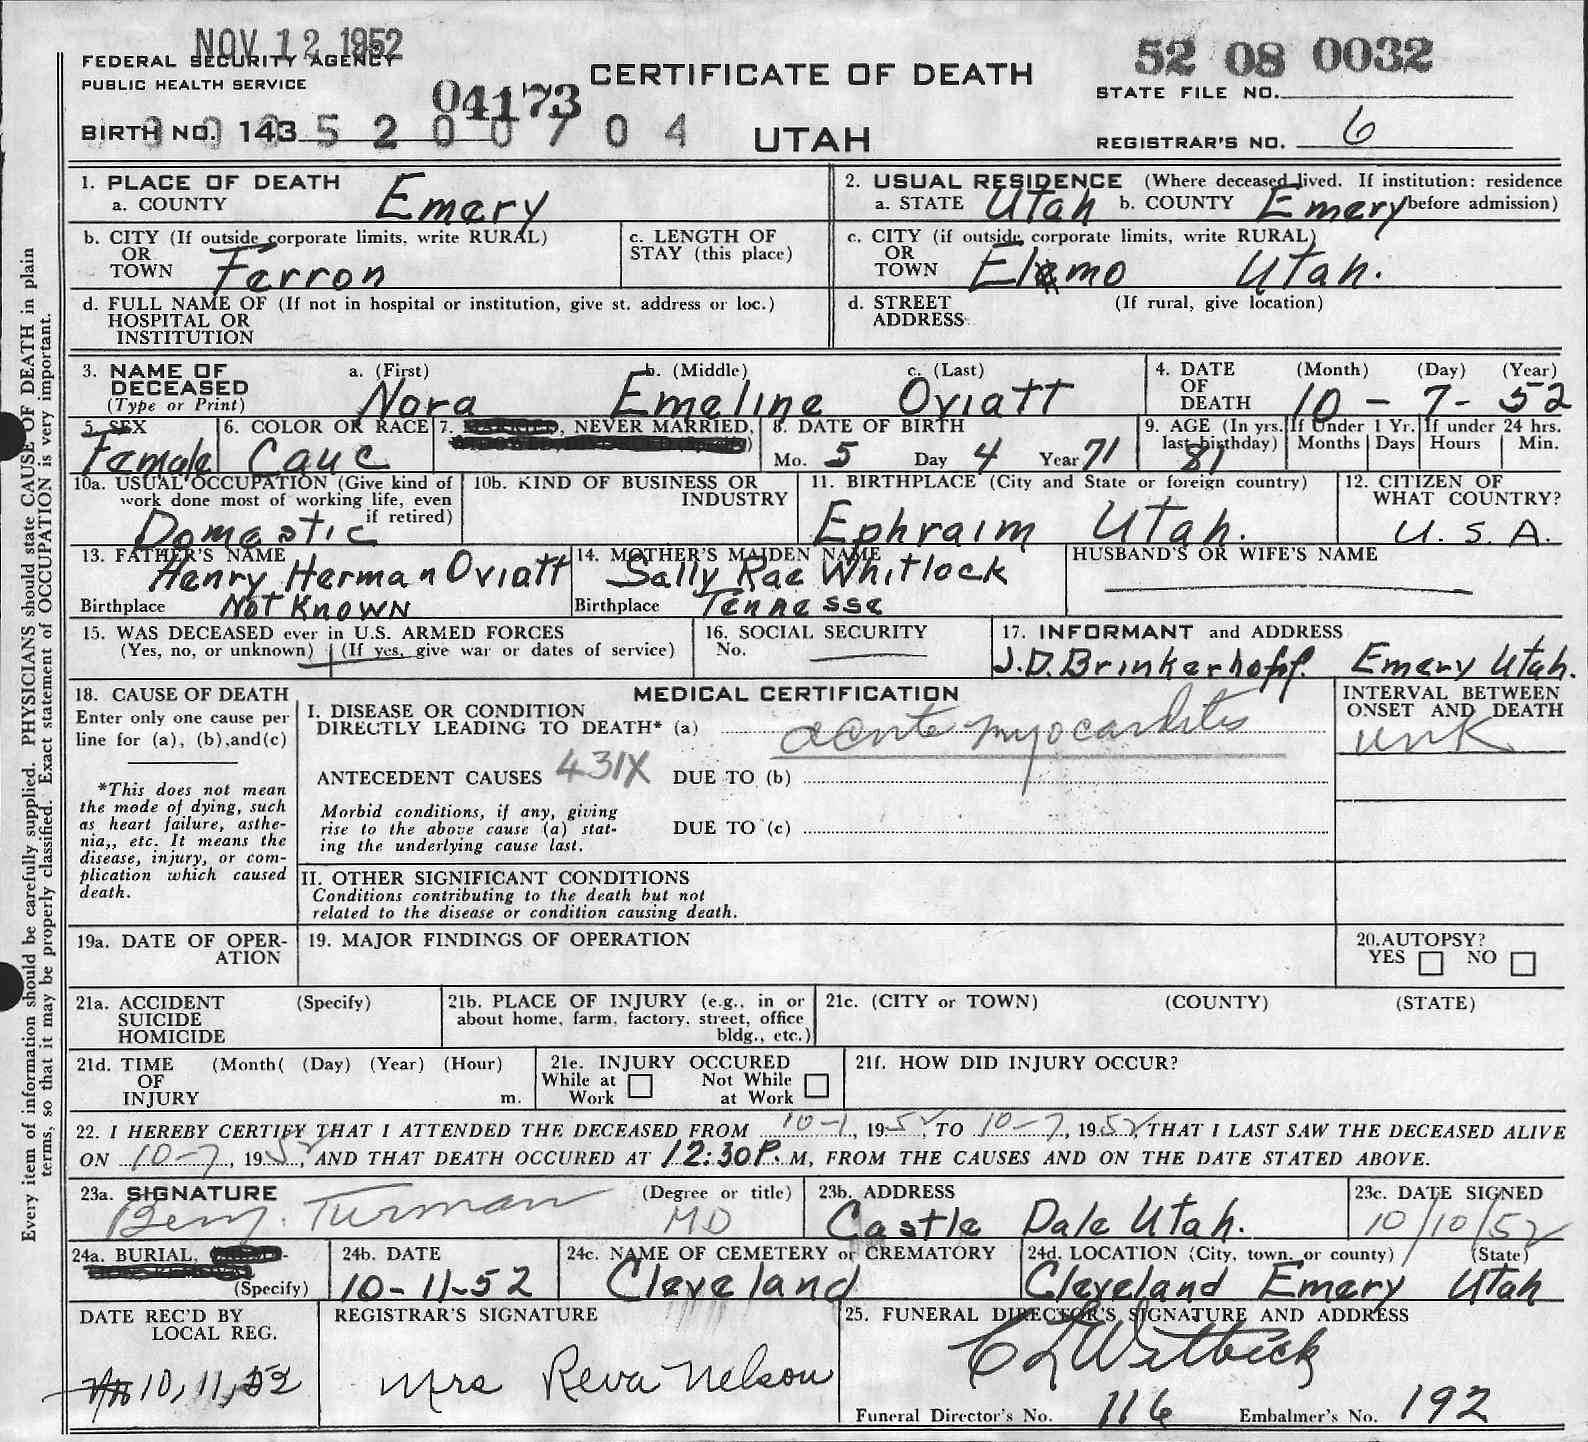 NOV 12 1952
FEDERAL SECURITY AGENCY
PUBLIC HEALTH SERVICE
CERTIFICATE OF DEATH
UTAH
52 08 0032
STATE FILE NO.
04173
BIRTH NO. 143 5 2 0 0 7 0 4
REGISTRAR'S NO. 6
Every item of information should be carefully supplied. PHYSICIANS should state CAUSE OF DEATH in plain
terms, so that it may be properly classified. Exact statement of OCCUPATION is very important.
1. PLACE OF DEATH
a. COUNTY Emery
2. USUAL RESIDENCE (Where deceased lived. If institution: residence
a. STATE Utah b. COUNTY Emery before admission)
b. CITY (If outside corporate limits, write RURAL)
OR
TOWN Ferron
c. LENGTH OF
STAY (this place)
c. CITY (if outside corporate limits, write RURAL)
OR
TOWN Elmo Utah.
d. FULL NAME OF (If not in hospital or institution, give st. address or loc.)
HOSPITAL OR
INSTITUTION
d. STREET (If rural, give location)
ADDRESS
3. NAME OF
DECEASED
(Type or Print)
a. (First) b. (Middle) c. (Last)
Nora Emeline Oviatt
4. DATE
OF
DEATH
(Month) (Day) (Year)
10 - 7 - 52
5. SEX
Female
6. COLOR OR RACE
Cauc
7. MARRIED, NEVER MARRIED,
WIDOWED, DIVORCED (Specify)
8. DATE OF BIRTH
Mo. 5 Day 4 Year 71
9. AGE (In yrs.
last birthday)
81
If Under 1 Yr.
Months Days
If under 24 hrs.
Hours Min.
10a. USUAL OCCUPATION (Give kind of
work done most of working life, even
if retired)
Domastic
10b. KIND OF BUSINESS OR
INDUSTRY
11. BIRTHPLACE (City and State or foreign country)
Ephraim Utah.
12. CITIZEN OF
WHAT COUNTRY?
U. S. A.
13. FATHER'S NAME
Henry Herman Oviatt
Birthplace Not Known
14. MOTHER'S MAIDEN NAME
Sally Rae Whitlock
Birthplace Tennesse
HUSBAND'S OR WIFE'S NAME
15. WAS DECEASED ever in U.S. ARMED FORCES
(Yes, no, or unknown) (If yes, give war or dates of service)
16. SOCIAL SECURITY
No.
17. INFORMANT and ADDRESS
J.D. Brinkerhoff. Emery Utah.
18. CAUSE OF DEATH
Enter only one cause per
line for (a), (b), and (c)
*This does not mean
the mode of dying, such
as heart failure, asthe-
nia,, etc. It means the
disease, injury, or com-
plication which caused
death.
MEDICAL CERTIFICATION
I. DISEASE OR CONDITION
DIRECTLY LEADING TO DEATH* (a) acute myocarditis
ANTECEDENT CAUSES 431X DUE TO (b)
Morbid conditions, if any, giving
rise to the above cause (a) stat-
ing the underlying cause last.
DUE TO (c)
II. OTHER SIGNIFICANT CONDITIONS
Conditions contributing to the death but not
related to the disease or condition causing death.
INTERVAL BETWEEN
ONSET AND DEATH
unk
19a. DATE OF OPER-
ATION
19. MAJOR FINDINGS OF OPERATION
20. AUTOPSY?
YES NO
21a. ACCIDENT (Specify)
SUICIDE
HOMICIDE
21b. PLACE OF INJURY (e.g., in or
about home, farm, factory, street, office
bldg., etc.)
21c. (CITY or TOWN) (COUNTY) (STATE)
21d. TIME (Month( (Day) (Year) (Hour)
OF
INJURY m.
21e. INJURY OCCURED
While at Work Not While at Work
21f. HOW DID INJURY OCCUR?
22. I HEREBY CERTIFY THAT I ATTENDED THE DECEASED FROM 10-1, 1952, TO 10-7, 1952, THAT I LAST SAW THE DECEASED ALIVE
ON 10-7, 1952, AND THAT DEATH OCCURED AT 12:30 P. M, FROM THE CAUSES AND ON THE DATE STATED ABOVE.
23a. SIGNATURE (Degree or title)
Benj. Turman MD
23b. ADDRESS
Castle Dale Utah.
23c. DATE SIGNED
10/10/52
24a. BURIAL,
(Specify)
24b. DATE
10-11-52
24c. NAME OF CEMETERY or CREMATORY
Cleveland
24d. LOCATION (City, town, or county) (State)
Cleveland Emery Utah
DATE REC'D BY
LOCAL REG.
10, 11, 52
REGISTRAR'S SIGNATURE
Mrs Reva Nelson
25. FUNERAL DIRECTOR'S SIGNATURE AND ADDRESS
C L Witbeck
Funeral Director's No. 116 Embalmer's No. 192